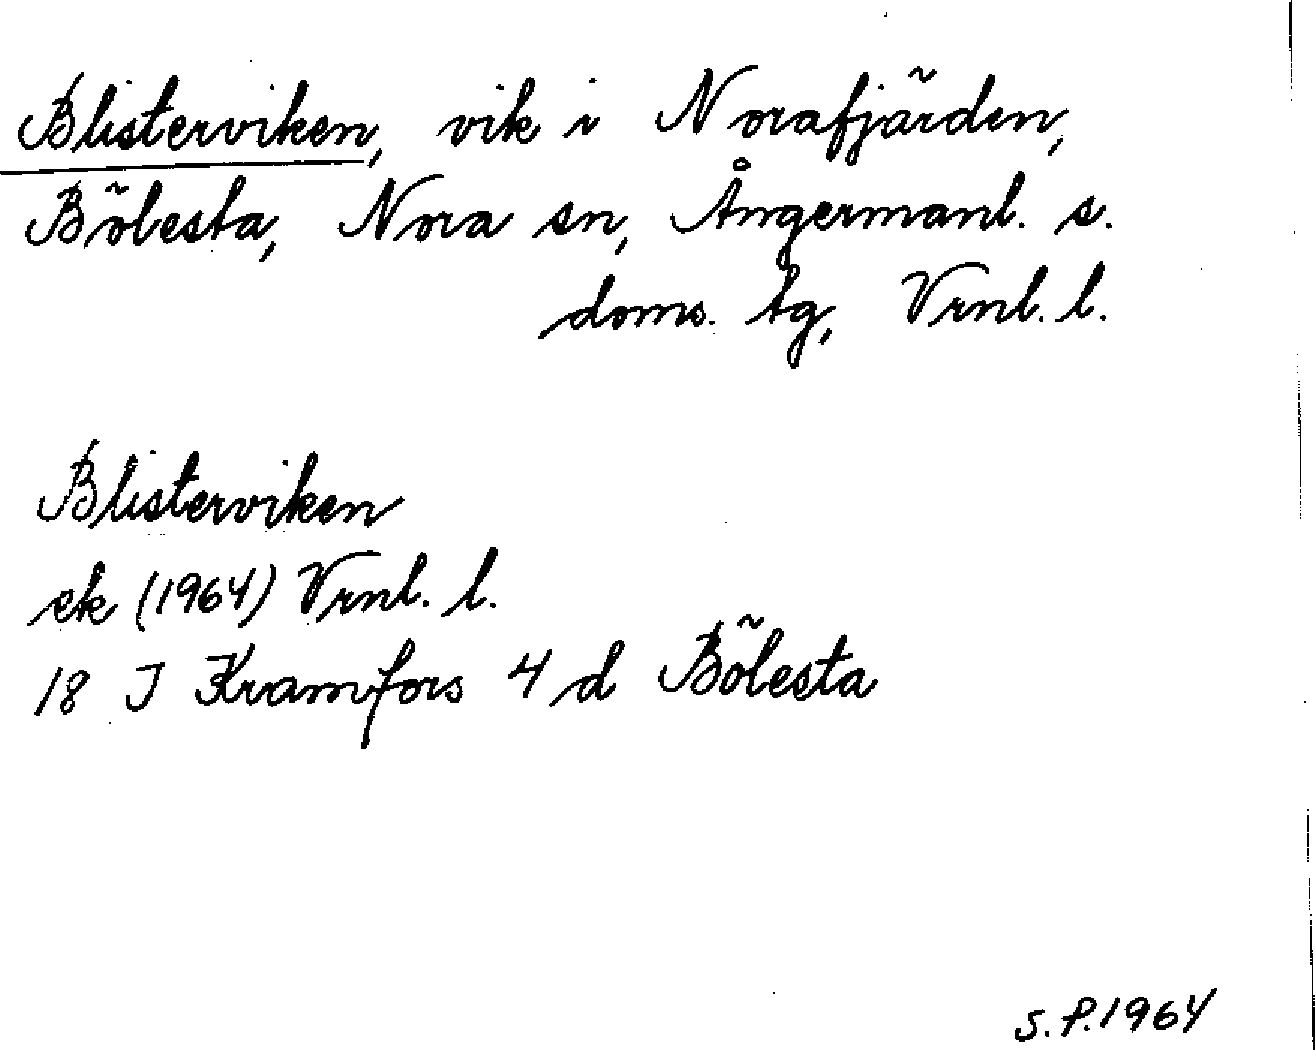 Blisterviken, vik i Norafjärden,
Bölesta, Nora sn, Ångermanl. s.
doms. tg, Vrnl. l.
Blisterviken
ek (1964) Vrnl. l.
18 I Kramfors 4 d Bölesta
S.P.1964